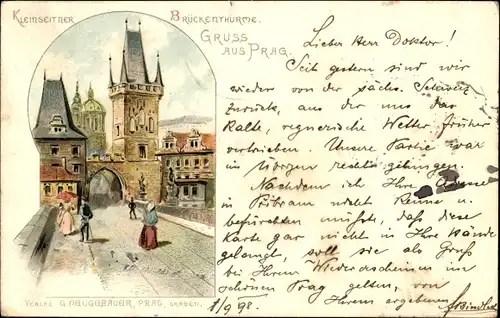 KLEINSEITNER BRÜCKENTHÜRME.
GRUSS
AUS PRAG.
Lieber Herr Doktor!
Seit gestern sind wir
wieder von der sächs. Schweiz
zurück, aus der uns das
kalte, regnerische Wetter früher
vertrieben. Unsere Partie war
im Übrigen recht gelungen.
Nachdem ich Ihre
in Pribram nicht kenne u.
befürchten mußte, daß diese
Karte gar nicht in Ihre Hände
gelangt, soll sie als Gruß
bei Ihrem Wiedererscheinen im
schönen Prag gelten, von
Ihrem ergebenen
1/9 98.
VERLAG G. NEUGEBAUER, PRAG, GRABEN.